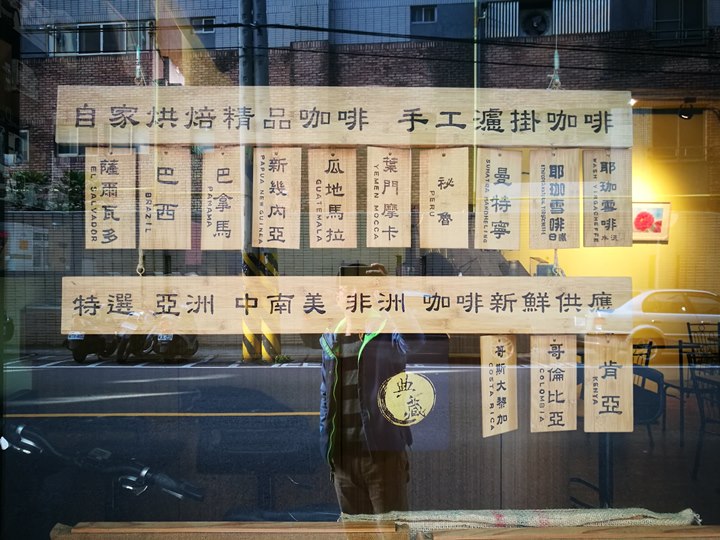 自家烘焙精品咖啡 手工濾掛咖啡
薩爾瓦多
EL SALVADOR
巴西
BRAZIL
巴拿馬
PANAMA
新幾內亞
PAPUA NEW GUINEA
瓜地馬拉
GUATEMALA
葉門摩卡
YEMEN MOCCA
祕魯
PERU
曼特寧
SUMATRA MANDHELING
耶珈雪啡
日曬
耶珈雪啡
水洗
特選 亞洲 中南美 非洲 咖啡新鮮供應
典藏
哥斯大黎加
COSTA RICA
哥倫比亞
COLOMBIA
肯亞
KENYA